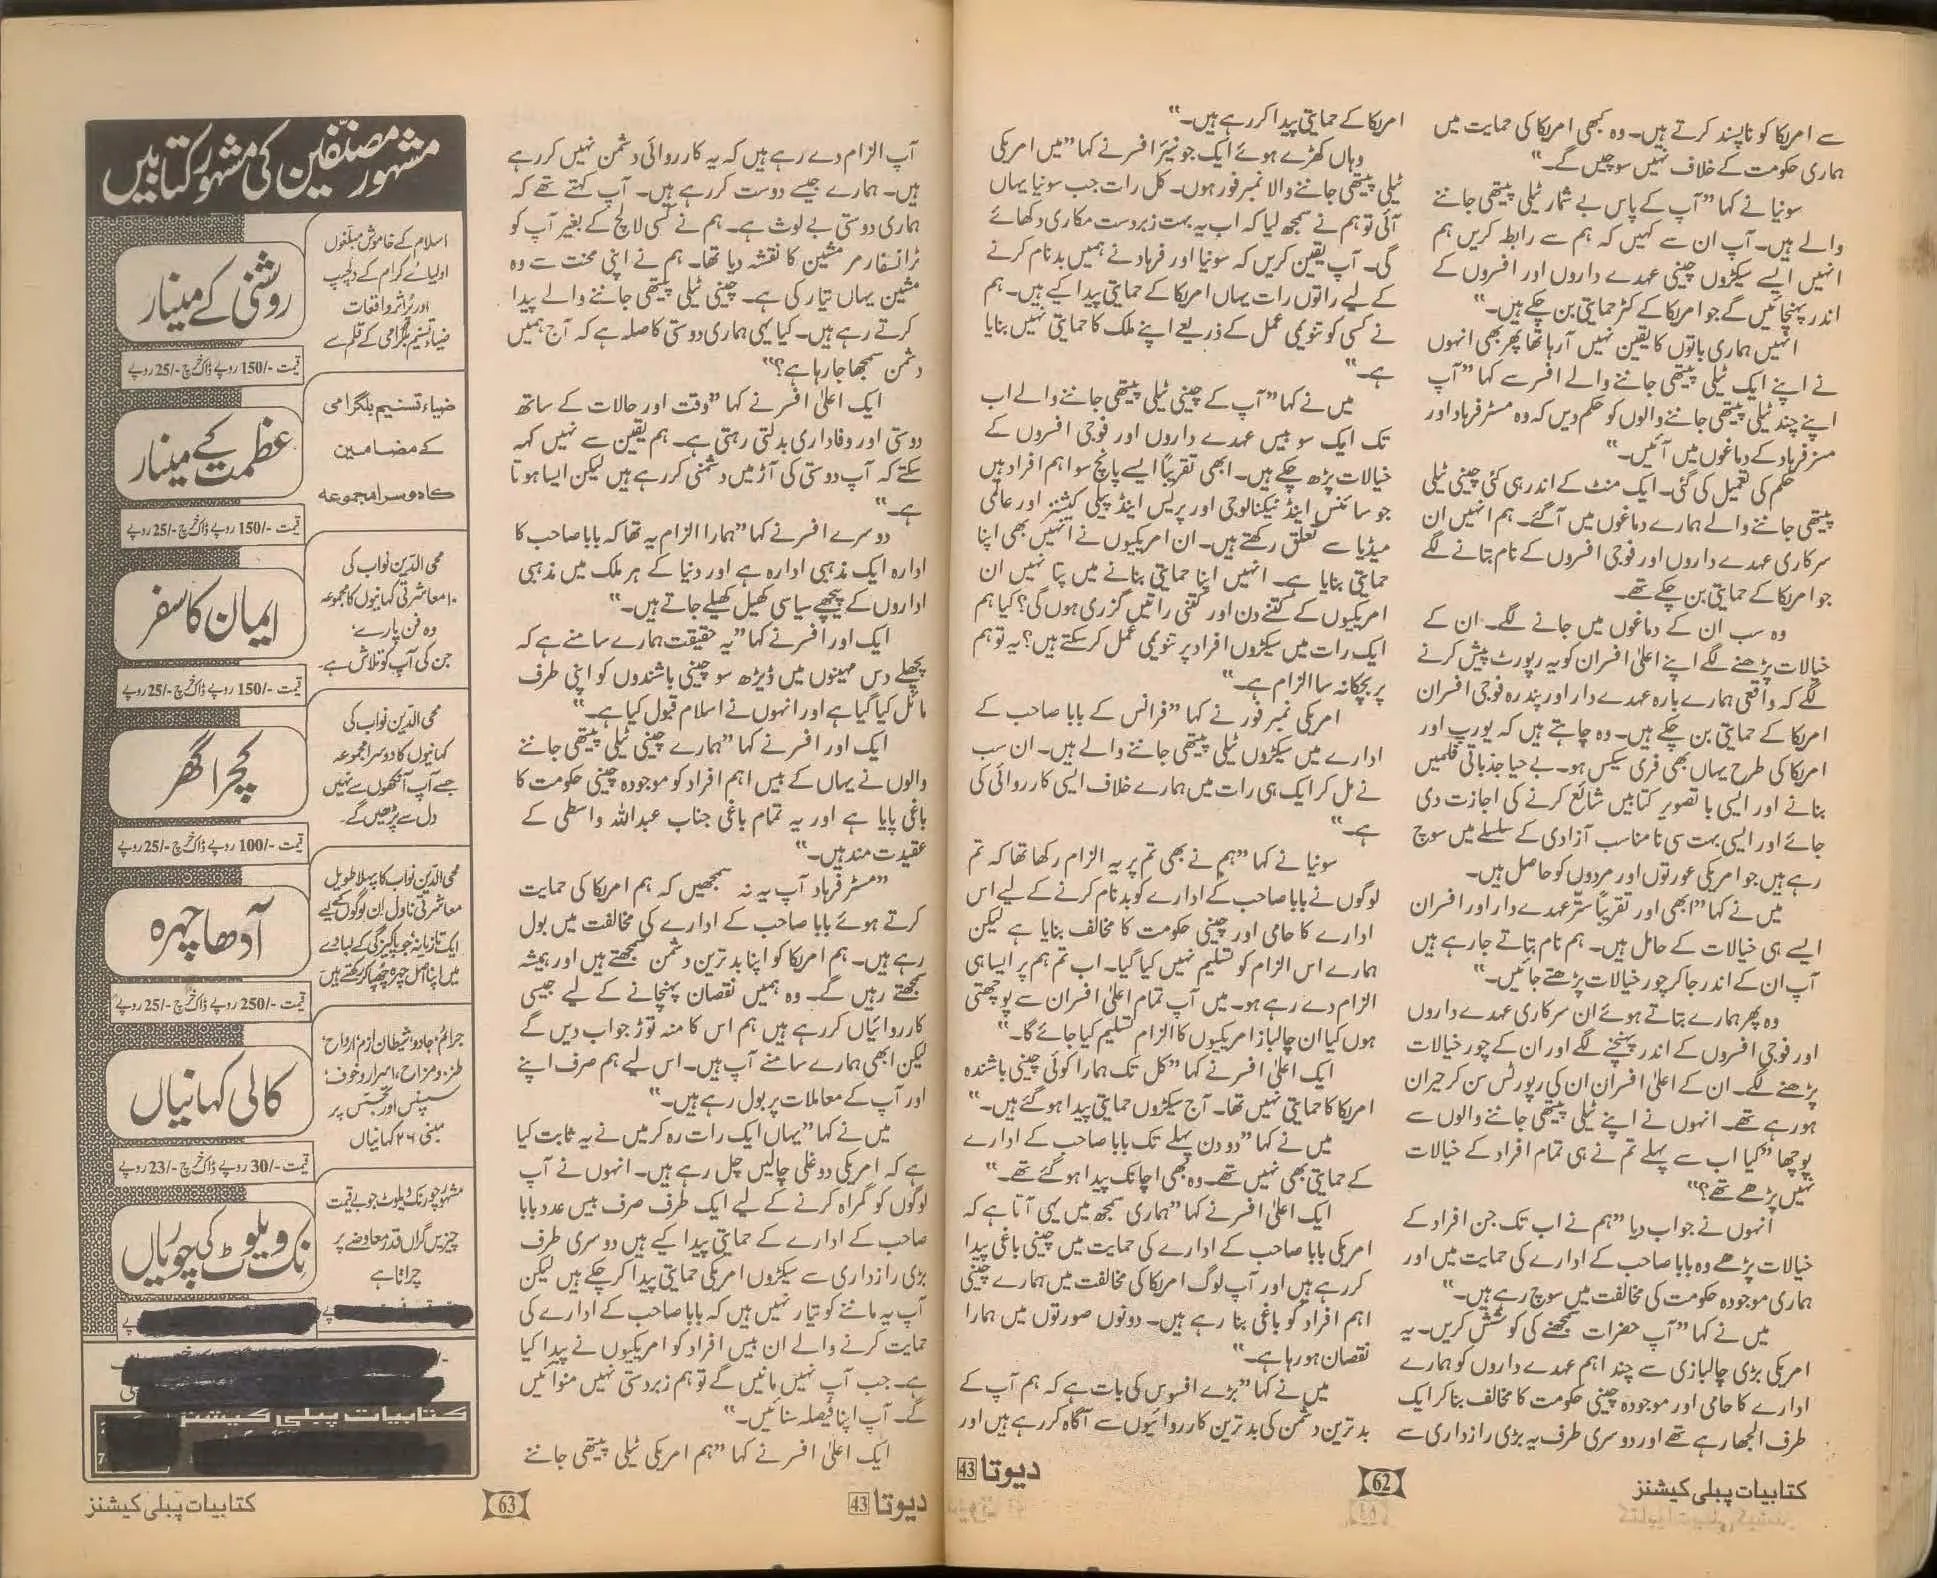 سے امریکا کو ناپسند کرتے ہیں۔ وہ کبھی امریکا کی حمایت میں
ہماری حکومت کے خلاف نہیں سوچیں گے۔"
سونیا نے کہا "آپ کے پاس بے شمار ٹیلی پیتھی جاننے
والے ہیں۔ آپ ان سے کہیں کہ ہم سے رابطہ کریں ہم
انہیں ایسے سیکڑوں چینی عہدے داروں اور افسروں کے
اندر پہنچائیں گے جو امریکا کے کٹر حمایتی بن چکے ہیں۔"
انہیں ہماری باتوں کا یقین نہیں آرہا تھا پھر بھی انہوں
نے اپنے ایک ٹیلی پیتھی جاننے والے افسر سے کہا "آپ
اپنے چند ٹیلی پیتھی جاننے والوں کو حکم دیں کہ وہ مسٹر فرہاد اور
مسز فرہاد کے دماغوں میں آئیں۔"
حکم کی تعمیل کی گئی۔ ایک منٹ کے اندر ہی کئی چینی ٹیلی
پیتھی جاننے والے ہمارے دماغوں میں آگئے۔ ہم انہیں ان
سرکاری عہدے داروں اور فوجی افسروں کے نام بتانے لگے
جو امریکا کے حمایتی بن چکے تھے۔
وہ سب ان کے دماغوں میں جانے لگے۔ ان کے
خیالات پڑھنے لگے اپنے اعلیٰ افسران کو یہ رپورٹ پیش کرنے
لگے کہ واقعی ہمارے بارہ عہدے دار اور پندرہ فوجی افسران
امریکا کے حمایتی بن چکے ہیں۔ وہ چاہتے ہیں کہ یورپ اور
امریکا کی طرح یہاں بھی فری سیکس ہو۔ بے حیا جذباتی فلمیں
بنانے اور ایسی با تصویر کتابیں شائع کرنے کی اجازت دی
جائے اور ایسی بہت سی نامناسب آزادی کے سلسلے میں سوچ
رہے ہیں جو امریکی عورتوں اور مردوں کو حاصل ہیں۔
میں نے کہا "ابھی اور تقریباً ستّر عہدے دار اور افسران
ایسے ہی خیالات کے حامل ہیں۔ ہم نام بتاتے جارہے ہیں
آپ ان کے اندر جا کر چور خیالات پڑھتے جائیں۔"
وہ پھر ہمارے بتائے ہوئے ان سرکاری عہدے داروں
اور فوجی افسروں کے اندر پہنچنے لگے اور ان کے چور خیالات
پڑھنے لگے۔ ان کے اعلیٰ افسران ان کی رپورٹس سن کر حیران
ہورہے تھے۔ انہوں نے اپنے ٹیلی پیتھی جاننے والوں سے
پوچھا "کیا اب سے پہلے تم نے ہی تمام افراد کے خیالات
نہیں پڑھے تھے؟"
انہوں نے جواب دیا "ہم نے اب تک جن افراد کے
خیالات پڑھے وہ بابا صاحب کے ادارے کی حمایت میں اور
ہماری موجودہ حکومت کی مخالفت میں سوچ رہے ہیں۔"
میں نے کہا "آپ حضرات سمجھنے کی کوشش کریں۔ یہ
امریکی بڑی چالبازی سے چند اہم عہدے داروں کو ہمارے
ادارے کا حامی اور موجودہ چینی حکومت کا مخالف بنا کر ایک
طرف الجھا رہے تھے اور دوسری طرف یہ بڑی رازداری سے
امریکا کے حمایتی پیدا کر رہے ہیں۔"
وہاں کھڑے ہوئے ایک جونیئر افسر نے کہا "میں امریکی
ٹیلی پیتھی جاننے والا نمبر فور ہوں۔ کل رات جب سونیا یہاں
آئی تو ہم نے سمجھ لیا کہ اب یہ بہت زبردست مکاری دکھائے
گی۔ آپ یقین کریں کہ سونیا اور فرہاد نے ہمیں بدنام کرنے
کے لیے راتوں رات یہاں امریکا کے حمایتی پیدا کیے ہیں۔ ہم
نے کسی کو تنویمی عمل کے ذریعے اپنے ملک کا حمایتی نہیں بنایا
ہے۔"
میں نے کہا "آپ کے چینی ٹیلی پیتھی جاننے والے اب
تک ایک سو بیس عہدے داروں اور فوجی افسروں کے
خیالات پڑھ چکے ہیں۔ ابھی تقریباً ایسے پانچ سو اہم افراد ہیں
جو سائنس اینڈ ٹیکنالوجی اور پریس اینڈ پبلی کیشنز اور عالمی
میڈیا سے تعلق رکھتے ہیں۔ ان امریکیوں نے انہیں بھی اپنا
حمایتی بنایا ہے۔ انہیں اپنا حمایتی بنانے میں پتا نہیں ان
امریکیوں کے کتنے دن اور کتنی راتیں گزری ہوں گی؟ کیا ہم
ایک رات میں سیکڑوں افراد پر تنویمی عمل کر سکتے ہیں؟ یہ تو ہم
پر بچکانہ سا الزام ہے۔"
امریکی نمبر فور نے کہا "فرانس کے بابا صاحب کے
ادارے میں سیکڑوں ٹیلی پیتھی جاننے والے ہیں۔ ان سب
نے مل کر ایک ہی رات میں ہمارے خلاف ایسی کارروائی کی
ہے۔"
سونیا نے کہا "ہم نے بھی تم پر یہ الزام رکھا تھا کہ تم
لوگوں نے بابا صاحب کے ادارے کو بدنام کرنے کے لیے اس
ادارے کا حامی اور چینی حکومت کا مخالف بنایا ہے لیکن
ہمارے اس الزام کو تسلیم نہیں کیا گیا۔ اب تم ہم پر ایسا ہی
الزام دے رہے ہو۔ میں آپ تمام اعلیٰ افسران سے پوچھتی
ہوں کیا ان چالباز امریکیوں کا الزام تسلیم کیا جائے گا۔"
ایک اعلیٰ افسر نے کہا "کل تک ہمارا کوئی چینی باشندہ
امریکا کا حمایتی نہیں تھا۔ آج سیکڑوں حمایتی پیدا ہو گئے ہیں۔"
میں نے کہا "دو دن پہلے تک بابا صاحب کے ادارے
کے حمایتی بھی نہیں تھے۔ وہ بھی اچانک پیدا ہو گئے تھے۔"
ایک اعلیٰ افسر نے کہا "ہماری سمجھ میں یہی آتا ہے کہ
امریکی بابا صاحب کے ادارے کی حمایت میں چینی باغی پیدا
کر رہے ہیں اور آپ لوگ امریکا کی مخالفت میں ہمارے چینی
اہم افراد کو باغی بنا رہے ہیں۔ دونوں صورتوں میں ہمارا
نقصان ہورہا ہے۔"
میں نے کہا "بڑے افسوس کی بات ہے کہ ہم آپ کے
بدترین دشمن کی بدترین کارروائیوں سے آگاہ کر رہے ہیں اور
کتابیات پبلی کیشنز
62
دیوتا 43
آپ الزام دے رہے ہیں کہ یہ کارروائی دشمن نہیں کر رہے
ہیں۔ ہمارے جیسے دوست کر رہے ہیں۔ آپ کہتے تھے کہ
ہماری دوستی بے لوث ہے۔ ہم نے کسی لالچ کے بغیر آپ کو
ٹرانسفارمر مشین کا نقشہ دیا تھا۔ ہم نے اپنی محنت سے وہ
مشین یہاں تیار کی ہے۔ چینی ٹیلی پیتھی جاننے والے پیدا
کرتے رہے ہیں۔ کیا یہی ہماری دوستی کا صلہ ہے کہ آج ہمیں
دشمن سمجھا جارہا ہے؟"
ایک اعلیٰ افسر نے کہا "وقت اور حالات کے ساتھ
دوستی اور وفاداری بدلتی رہتی ہے۔ ہم یقین سے نہیں کہہ
سکتے کہ آپ دوستی کی آڑ میں دشمنی کر رہے ہیں لیکن ایسا ہوتا
ہے۔"
دوسرے افسر نے کہا "ہمارا الزام یہ تھا کہ بابا صاحب کا
ادارہ ایک مذہبی ادارہ ہے اور دنیا کے ہر ملک میں مذہبی
اداروں کے پیچھے سیاسی کھیل کھیلے جاتے ہیں۔"
ایک اور افسر نے کہا "یہ حقیقت ہمارے سامنے ہے کہ
پچھلے دس مہینوں میں ڈیڑھ سو چینی باشندوں کو اپنی طرف
مائل کیا گیا ہے اور انہوں نے اسلام قبول کیا ہے۔"
ایک اور افسر نے کہا "ہمارے چینی ٹیلی پیتھی جاننے
والوں نے یہاں کے بیس اہم افراد کو موجودہ چینی حکومت کا
باغی پایا ہے اور یہ تمام باغی جناب عبداللہ واسطی کے
عقیدت مند ہیں۔"
"مسٹر فرہاد آپ یہ نہ سمجھیں کہ ہم امریکا کی حمایت
کرتے ہوئے بابا صاحب کے ادارے کی مخالفت میں بول
رہے ہیں۔ ہم امریکا کو اپنا بدترین دشمن سمجھتے ہیں اور ہمیشہ
سمجھتے رہیں گے۔ وہ ہمیں نقصان پہنچانے کے لیے جیسی
کارروائیاں کر رہے ہیں ہم اس کا منہ توڑ جواب دیں گے
لیکن ابھی ہمارے سامنے آپ ہیں۔ اس لیے ہم صرف اپنے
اور آپ کے معاملات پر بول رہے ہیں۔"
میں نے کہا "یہاں ایک رات رہ کر میں نے یہ ثابت کیا
ہے کہ امریکی دوغلی چالیں چل رہے ہیں۔ انہوں نے آپ
لوگوں کو گمراہ کرنے کے لیے ایک طرف صرف بیس عدد بابا
صاحب کے ادارے کے حمایتی پیدا کیے ہیں دوسری طرف
بڑی رازداری سے سیکڑوں امریکی حمایتی پیدا کر چکے ہیں لیکن
آپ یہ ماننے کو تیار نہیں ہیں کہ بابا صاحب کے ادارے کی
حمایت کرنے والے ان بیس افراد کو امریکیوں نے پیدا کیا
ہے۔ جب آپ نہیں مانیں گے تو ہم زبردستی نہیں منوائیں
گے۔ آپ اپنا فیصلہ سنائیں۔"
ایک اعلیٰ افسر نے کہا "ہم امریکی ٹیلی پیتھی جاننے
مشہور مصنّفین کی مشہور کتابیں
اسلام کے خاموش مبلغوں
اولیائے کرام کے دلچسپ
اور پُر اثر واقعات
ضیاء تسنیم بلگرامی کے قلم سے
روشنی کے مینار
قیمت -/150 روپے ڈاک خرچ -/25 روپے
ضیاء تسنیم بلگرامی
کے مضامین
کا دوسرا مجموعہ
عظمت کے مینار
قیمت -/150 روپے ڈاک خرچ -/25 روپے
محی الدّین نواب کی
۱۰ معاشرتی کہانیوں کا مجموعہ
وہ فن پارے،
جن کی آپ کو تلاش ہے۔
ایمان کا سفر
قیمت -/150 روپے ڈاک خرچ -/25 روپے
محی الدّین نواب کی
کہانیوں کا دوسرا مجموعہ
جسے آپ آنکھوں سے نہیں
دل سے پڑھیں گے۔
کچرا گھر
قیمت -/100 روپے ڈاک خرچ -/25 روپے
محی الدّین نواب کا پہلا طویل
معاشرتی ناول ان لوگوں کے لیے
ایک تازیانہ جو پاکیزگی کے لبادے
میں اپنا اصل چہرہ چھپا کر رکھتے ہیں
آدھا چہرہ
قیمت -/250 روپے ڈاک خرچ -/25 روپے
جرائم، جادو، شیطان ازم، ارواح،
طنز و مزاح، اسرار و خوف،
سسپنس اور تجسّس پر
مبنی ۲۶ کہانیاں
کالی کہانیاں
قیمت -/30 روپے ڈاک خرچ -/23 روپے
مشہور چور نک ویلوٹ جو بے قیمت
چیزیں گراں قدر معاوضے پر
چراتا ہے
نک ویلوٹ کی چوریاں
کتابیات پبلی کیشنز
دیوتا 43
63
کتابیات پبلی کیشنز